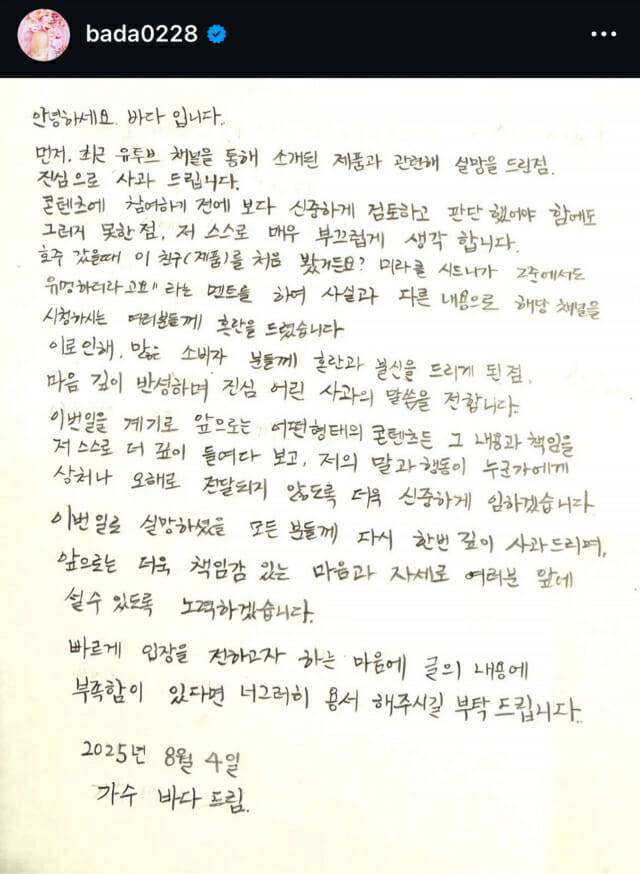 bada0228
안녕하세요. 바다 입니다.
먼저, 최근 유투브 채널을 통해 소개된 제품과 관련해 실망을 드린점.
진심으로 사과 드립니다.
콘텐츠에 참여하기 전에 보다 신중하게 검토하고 판단 했어야 함에도
그러지 못한 점, 저 스스로 매우 부끄럽게 생각 합니다.
호주 갔을때 이 친구(제품)를 처음 봤거든요? 미라클 시드니가 호주에서도
유명하더라고요" 라는 멘트를 하여 사실과 다른 내용으로 해당 채널을
시청하시는 여러분들께 혼란을 드렸습니다
이로인해, 많은 소비자 분들께 혼란과 불신을 드리게 된점.
마음 깊이 반성하며 진심 어린 사과의 말씀을 전합니다.
이번일을 계기로 앞으로는 어떤형태의 콘텐츠든 그 내용과 책임을
저 스스로 더 깊이 들여다 보고, 저의 말과 행동이 누군가에게
상처나 오해로 전달되지 않도록 더욱 신중하게 임하겠습니다
이번일로 실망하셨을 모든 분들께 다시 한번 깊이 사과드리며,
앞으로는 더욱 책임감 있는 마음과 자세로 여러분 앞에
설수 있도록 노력하겠습니다.
빠르게 입장을 전하고자 하는 마음에 글의 내용에
부족함이 있다면 너그러히 용서 해주시길 부탁 드립니다.
2025년 8월 4일
가수 바다 드림.